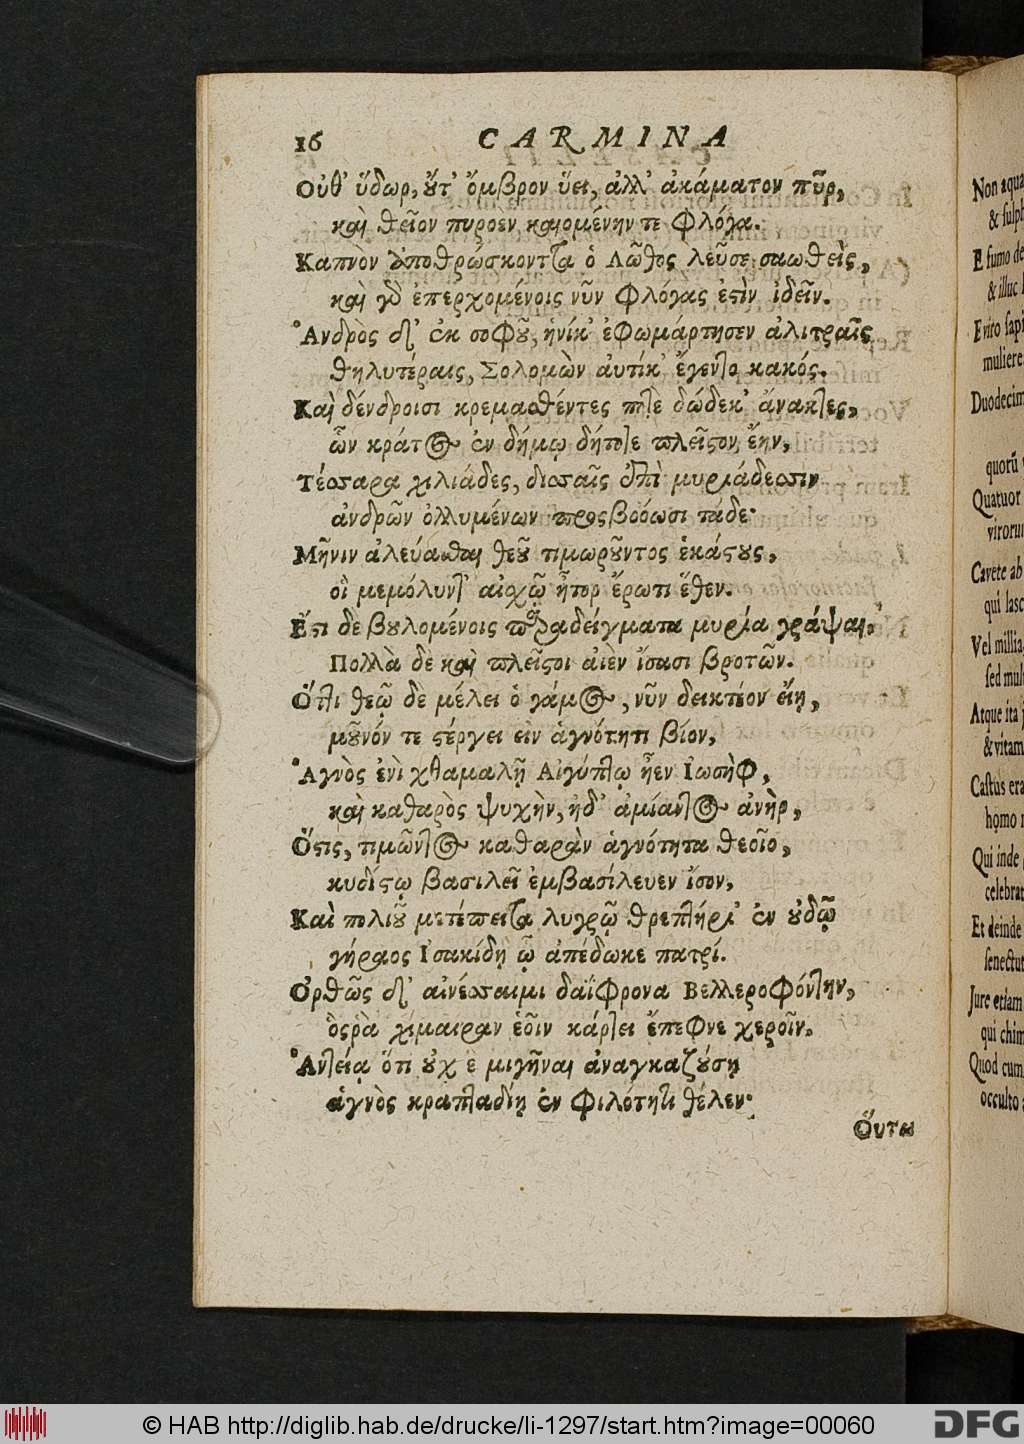 16 CARMINA
Οὐθ' ὕδωρ, οὔτ' ὄμβρον ὕει, ἀλλ' ἀκάματον πῦρ,
καὶ θεῖον πυροεν καιομένην τε φλόγα.
Καπνὸν ἀποθρώσκοντα ὁ Λῶθος λεῦσε σαωθεὶς,
καὶ γὰρ ἐπερχομένοις νῦν φλόγας ἐστὶν ἰδεῖν.
Ἀνδρὸς δ' ἐκ σοφοῦ, ἡνίκ' ἐφωμάρτησεν ἀλιτραῖς
θηλυτέραις, Σολομὼν αὐτίκ' ἔγεντο κακός.
Καὶ δένδροισι κρεμασθέντες ποτε δώδεκ' ἄνακτες,
ὧν κράτος ἐν δήμῳ δήποτε πλεῖστον ἔην,
Τέσσαρα χιλιάδες, δισσαῖς ἐπὶ μυριάδεσσιν
ἀνδρῶν ὀλλυμένων προσβοόωσι τάδε·
Μῆνιν ἀλεύασθαι θεοῦ τιμωροῦντος ἑκάστους,
οἳ μεμόλυντ' αἰσχρῷ ἦτορ ἔρωτι ἕθεν.
Ἔτι δε βουλομένοις παραδείγματα μυρία γράψαι,
Πολλὰ δὲ καὶ πλεῖστοι αἰὲν ἴσασι βροτῶν.
Ὅττι θεῷ δε μέλει ὁ γάμος, νῦν δεικτέον εἴη,
μοῦνόν τε στέργει εἰν ἁγνότητι βίον,
Ἁγνὸς ἐνὶ χθαμαλῇ Αἰγύπτῳ ἦεν Ἰωσὴφ,
καὶ καθαρὸς ψυχὴν, ἠδ' ἀμίαντος ἀνὴρ,
Ὅστις, τιμῶντος καθαρὰν ἁγνότητα θεοῖο,
κυδίστῳ βασιλεῖ ἐμβασίλευεν ἴσον,
Καὶ πολιοῦ μετέπειτα λυγρῷ θρεπτήρι' ἐν οὐδῷ
γήραος Ἰσακίδῃ ᾧ ἀπέδωκε πατρί.
Ὀρθῶς δ' αἰνέσσαιμι δαΐφρονα Βελλεροφόντην,
ὅς ῥὰ χίμαιραν ἑοῖν κάρτει ἔπεφνε χεροῖν.
Ἀντείᾳ ὅτι οὐχ ἑ μιγῆναι ἀναγκαζούσῃ
ἁγνὸς κρυπταδίῃ ἐν φιλότητι θέλεν·
Οὕτω
Non aqua
& sulph
E fumo de
& illuc
E viro sapi
muliere
Duodecim
quorū
Quatuor
virorum
Cavete ab
qui lasc
Vel millia
sed mul
Atque ita
& vitam
Castus era
homo
Qui inde
celebrat
Et deinde
senectut
Jure etiam
qui chim
Quod cum
occulto
© HAB http://diglib.hab.de/drucke/li-1297/start.htm?image=00060
DFG